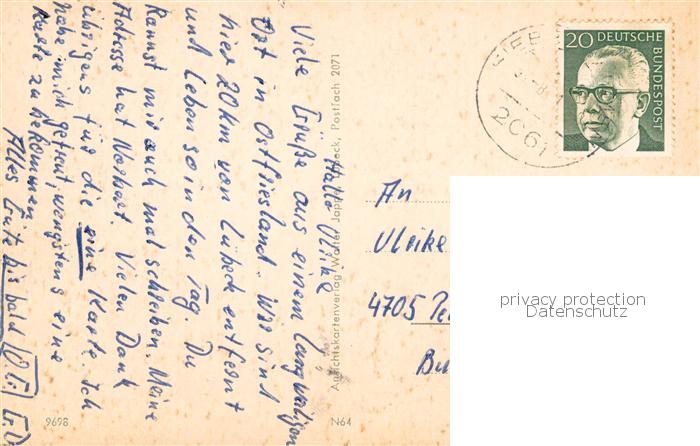 Hallo Ulrike
Viele Grüße aus einem langweiligen
Ort in Ostfriesland. Wir sind
hier 20km von Lübeck entfernt
und leben so in den Tag. Du
kannst mir auch mal schreiben. Meine
Adresse hat Volkart. Vielen Dank
übrigens für die eine Karte. Ich
habe mich gefreut, wenigstens eine
Karte zu bekommen
Alles Gute bis bald
9698
Ansichtskartenverlag Walter Japp, Lübeck, Postfach 2071
N64
2061
20 DEUTSCHE
BUNDESPOST
An
Ulrike
4705 Pe
Bu
privacy protection
Datenschutz